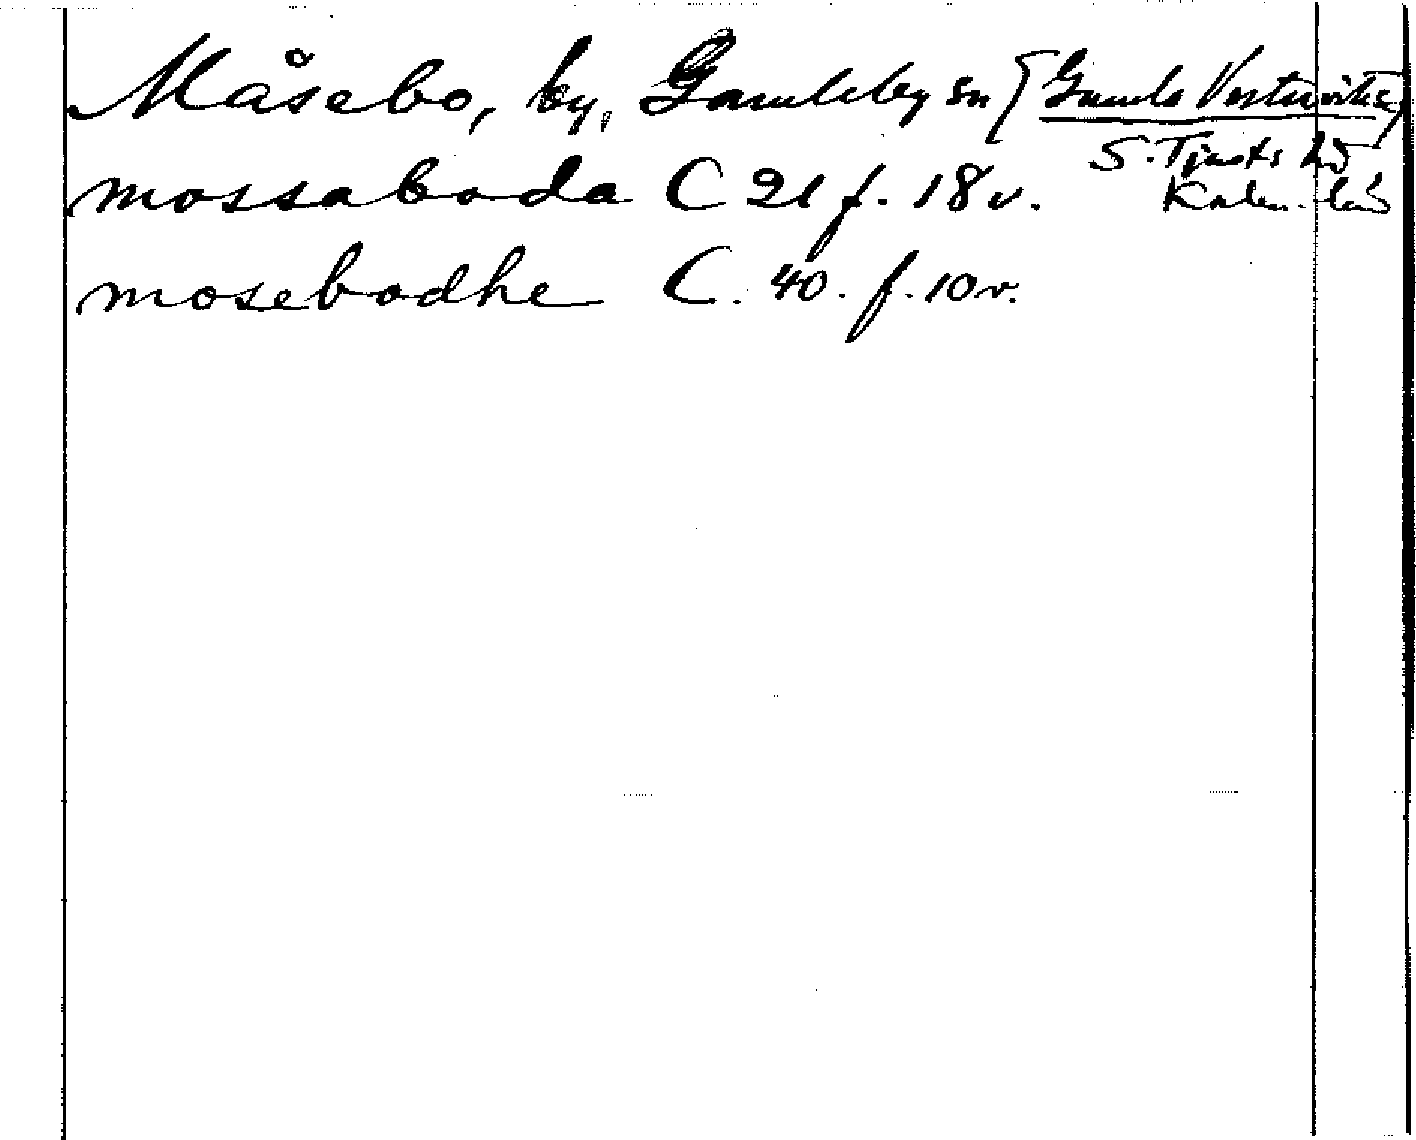 Måsebo, by, Gamleby sn (Gamla Västervik)
S. Tjusts hd
mossaboda C 21 f. 18 v.
Kalm. län
mosebodhe C. 40. f. 10 v.